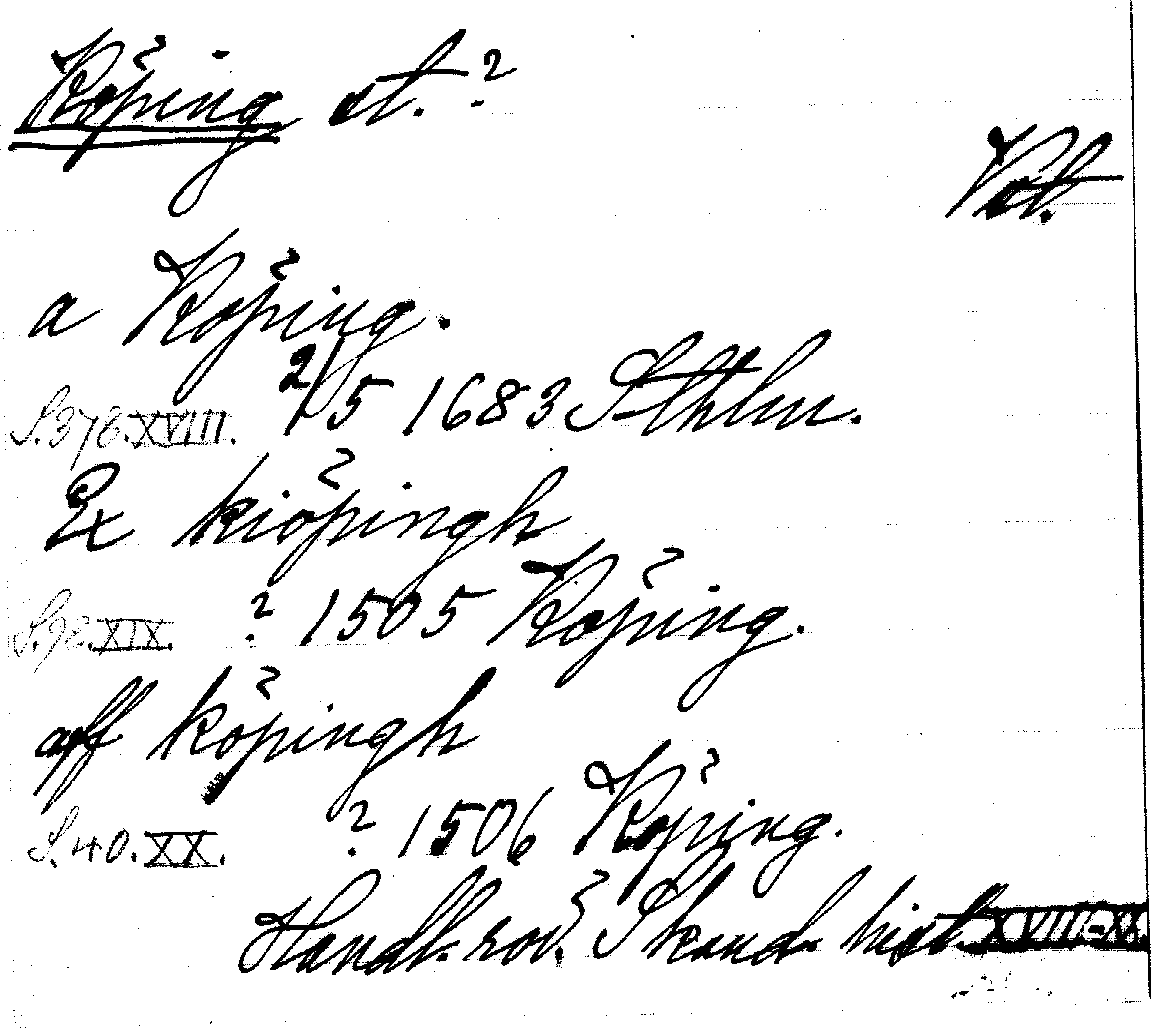 Köping st. ?
Vst.
a Köping.
S. 378. XVIII. 2/5 1683 Sthlm.
Ex kiöpingh
S. 92. XIX. ? 1505 Köping.
aff köpingh
S. 40. XX. ? 1506 Köping.
Handl. rör. Skand. hist. XVIII-XX.